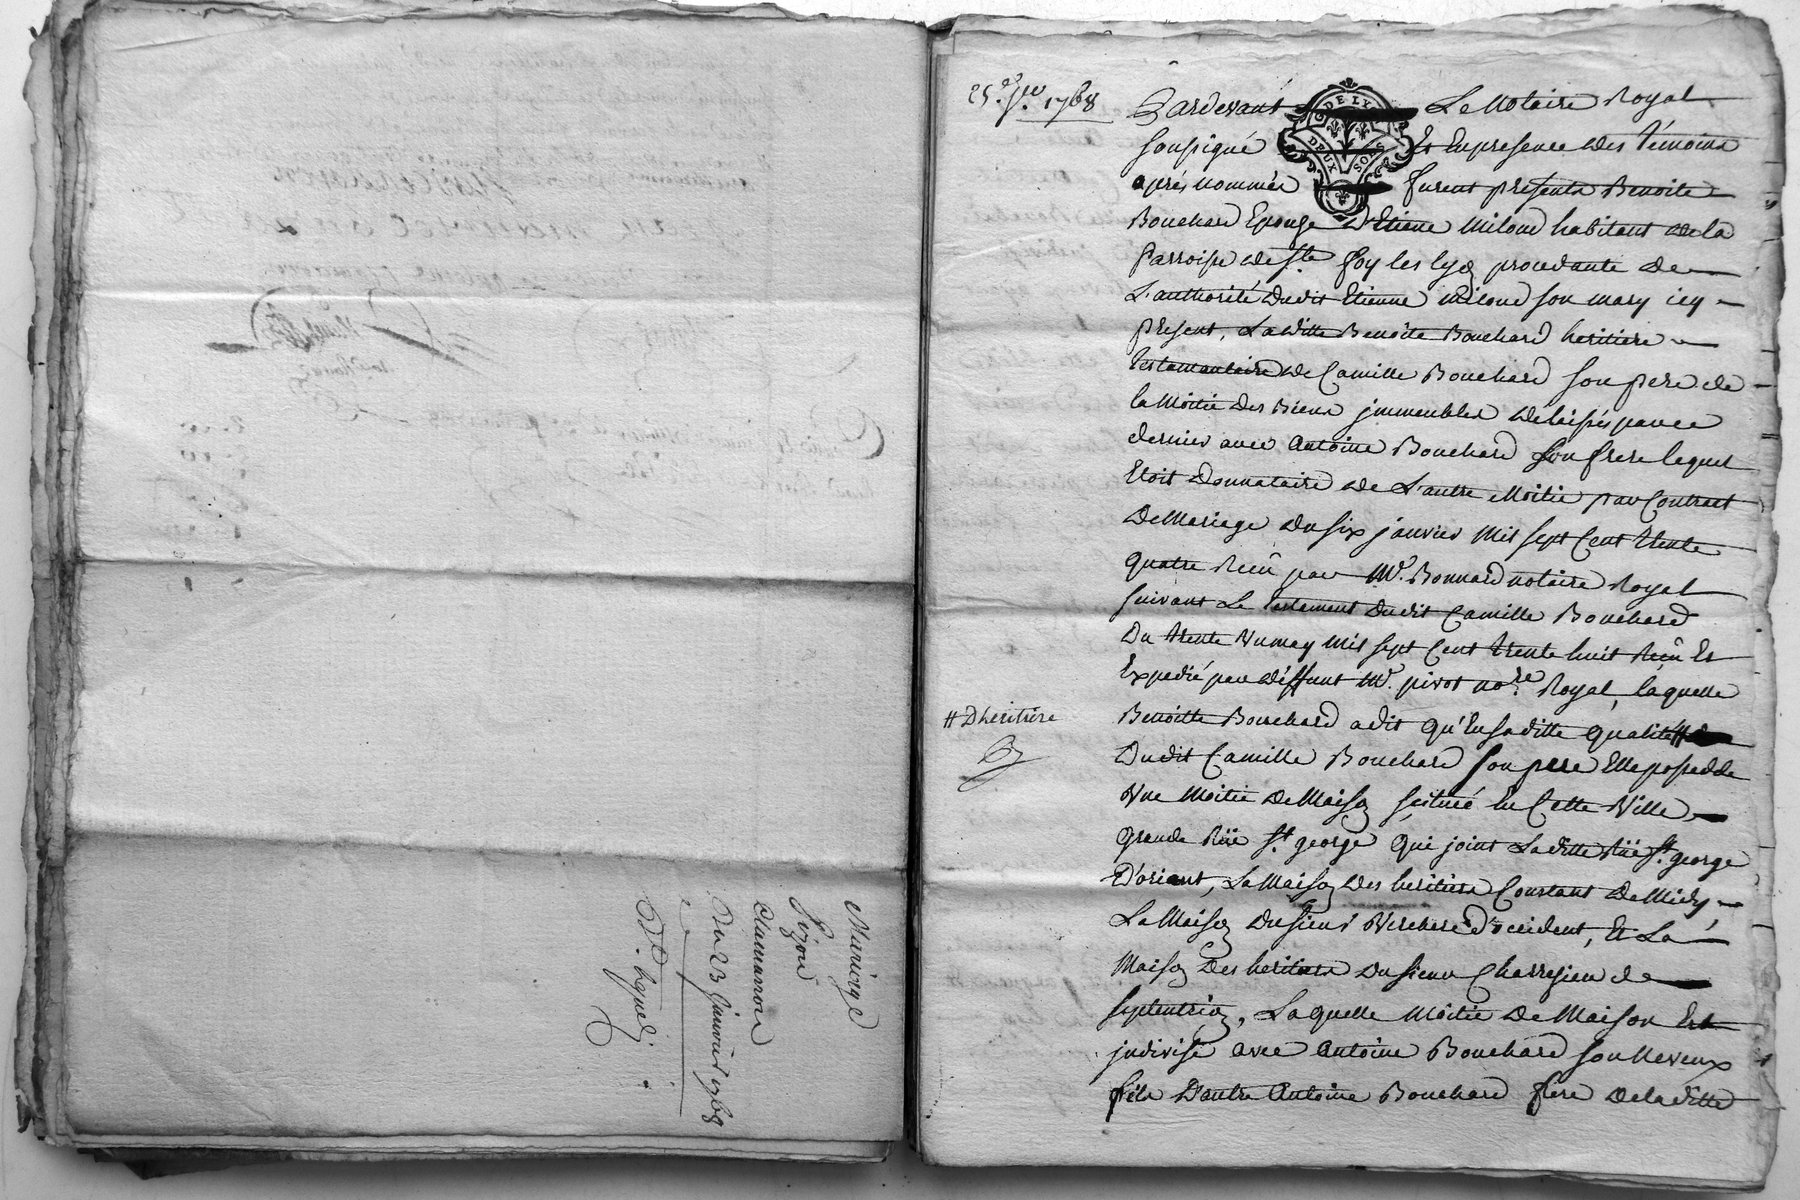 Mariage
Pizou
Clamaron
Du 23 Janvier 1768
25e. Jer. 1768
Pardevant Le Notaire Royal
DE LYON
DEUX SOLS
soussigné Et En presence des témoins
aprés nommés furent présents Benoite
Bouchard Epouse D'Etienne Milond habitant de la
Parroisse de Ste. foy les lyon procédante de
L'authorité Dudit Etienne Milond son mary icy
present, La ditte Benoite Bouchard heritiere
testamentaire de Camille Bouchard son pere de
la Moitié des Biens jmmeubles delaissés par ce
dernier avec Antoine Bouchard son frere lequel
Etoit Donnataire de L'autre Moitié par Contract
De Mariage du six janvier Mil sept Cent trente
quatre Recû par Me. Bonnard notaire Royal
suivant Le testament dudit Camille Bouchard
Du trente Un may Mil sept Cent trente huit Recû Et
Expedié par deffunt Me. pivot nore. Royal, laquelle
# D'heritiére
Benoitte Bouchard a dit qu'En sa ditte qualité #
Dudit Camille Bouchard son pere Elle possedde
Une Moitié De Maison scitué En Cette Ville
grande Rüe St. george qui joint La ditte Rüe St. george
D'orient, La Maison des heritiers Constant De Midy,
La Maison du sieur Verchere d'occident, Et La
Maison Des heritiers du sieur Charresieu de
septentrion, Laquelle Moitié De Maison Est
jndivise avec Antoine Bouchard son Neveux
fils D'autre Antoine Bouchard frere De la ditte